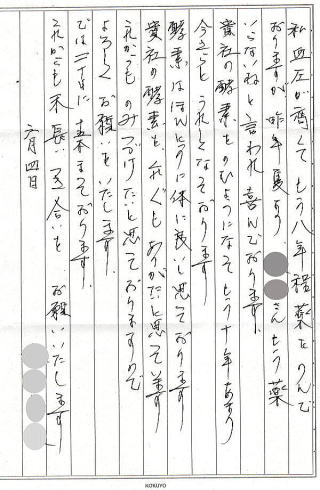 私血圧が高くてもう八年程薬をのんで
おりますが昨年夏より さんもう薬
いらないねと言われ喜んでおります。
貴社の酵素をのむようになってもう十年あまり
今さらと うれしくなっております
酵素はほんとうに体に良いと思っております
貴社の酵素を ありがたいと思って います
これからものみつづけたいと思っておりますので
よろしくお願いをいたします。
では 本まっております。
これからも末長いお付合いを お願いいたします
六月四日
KOKUYO